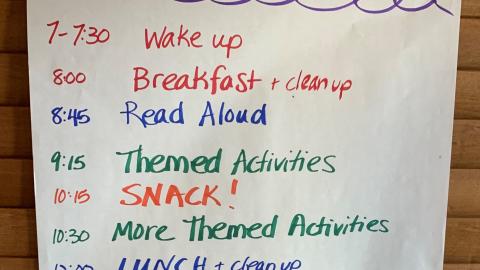 7-7:30 Wake up
8:00 Breakfast + clean up
8:45 Read Aloud
9:15 Themed Activities
10:15 SNACK!
10:30 More Themed Activities
12:00 LUNCH + clean up